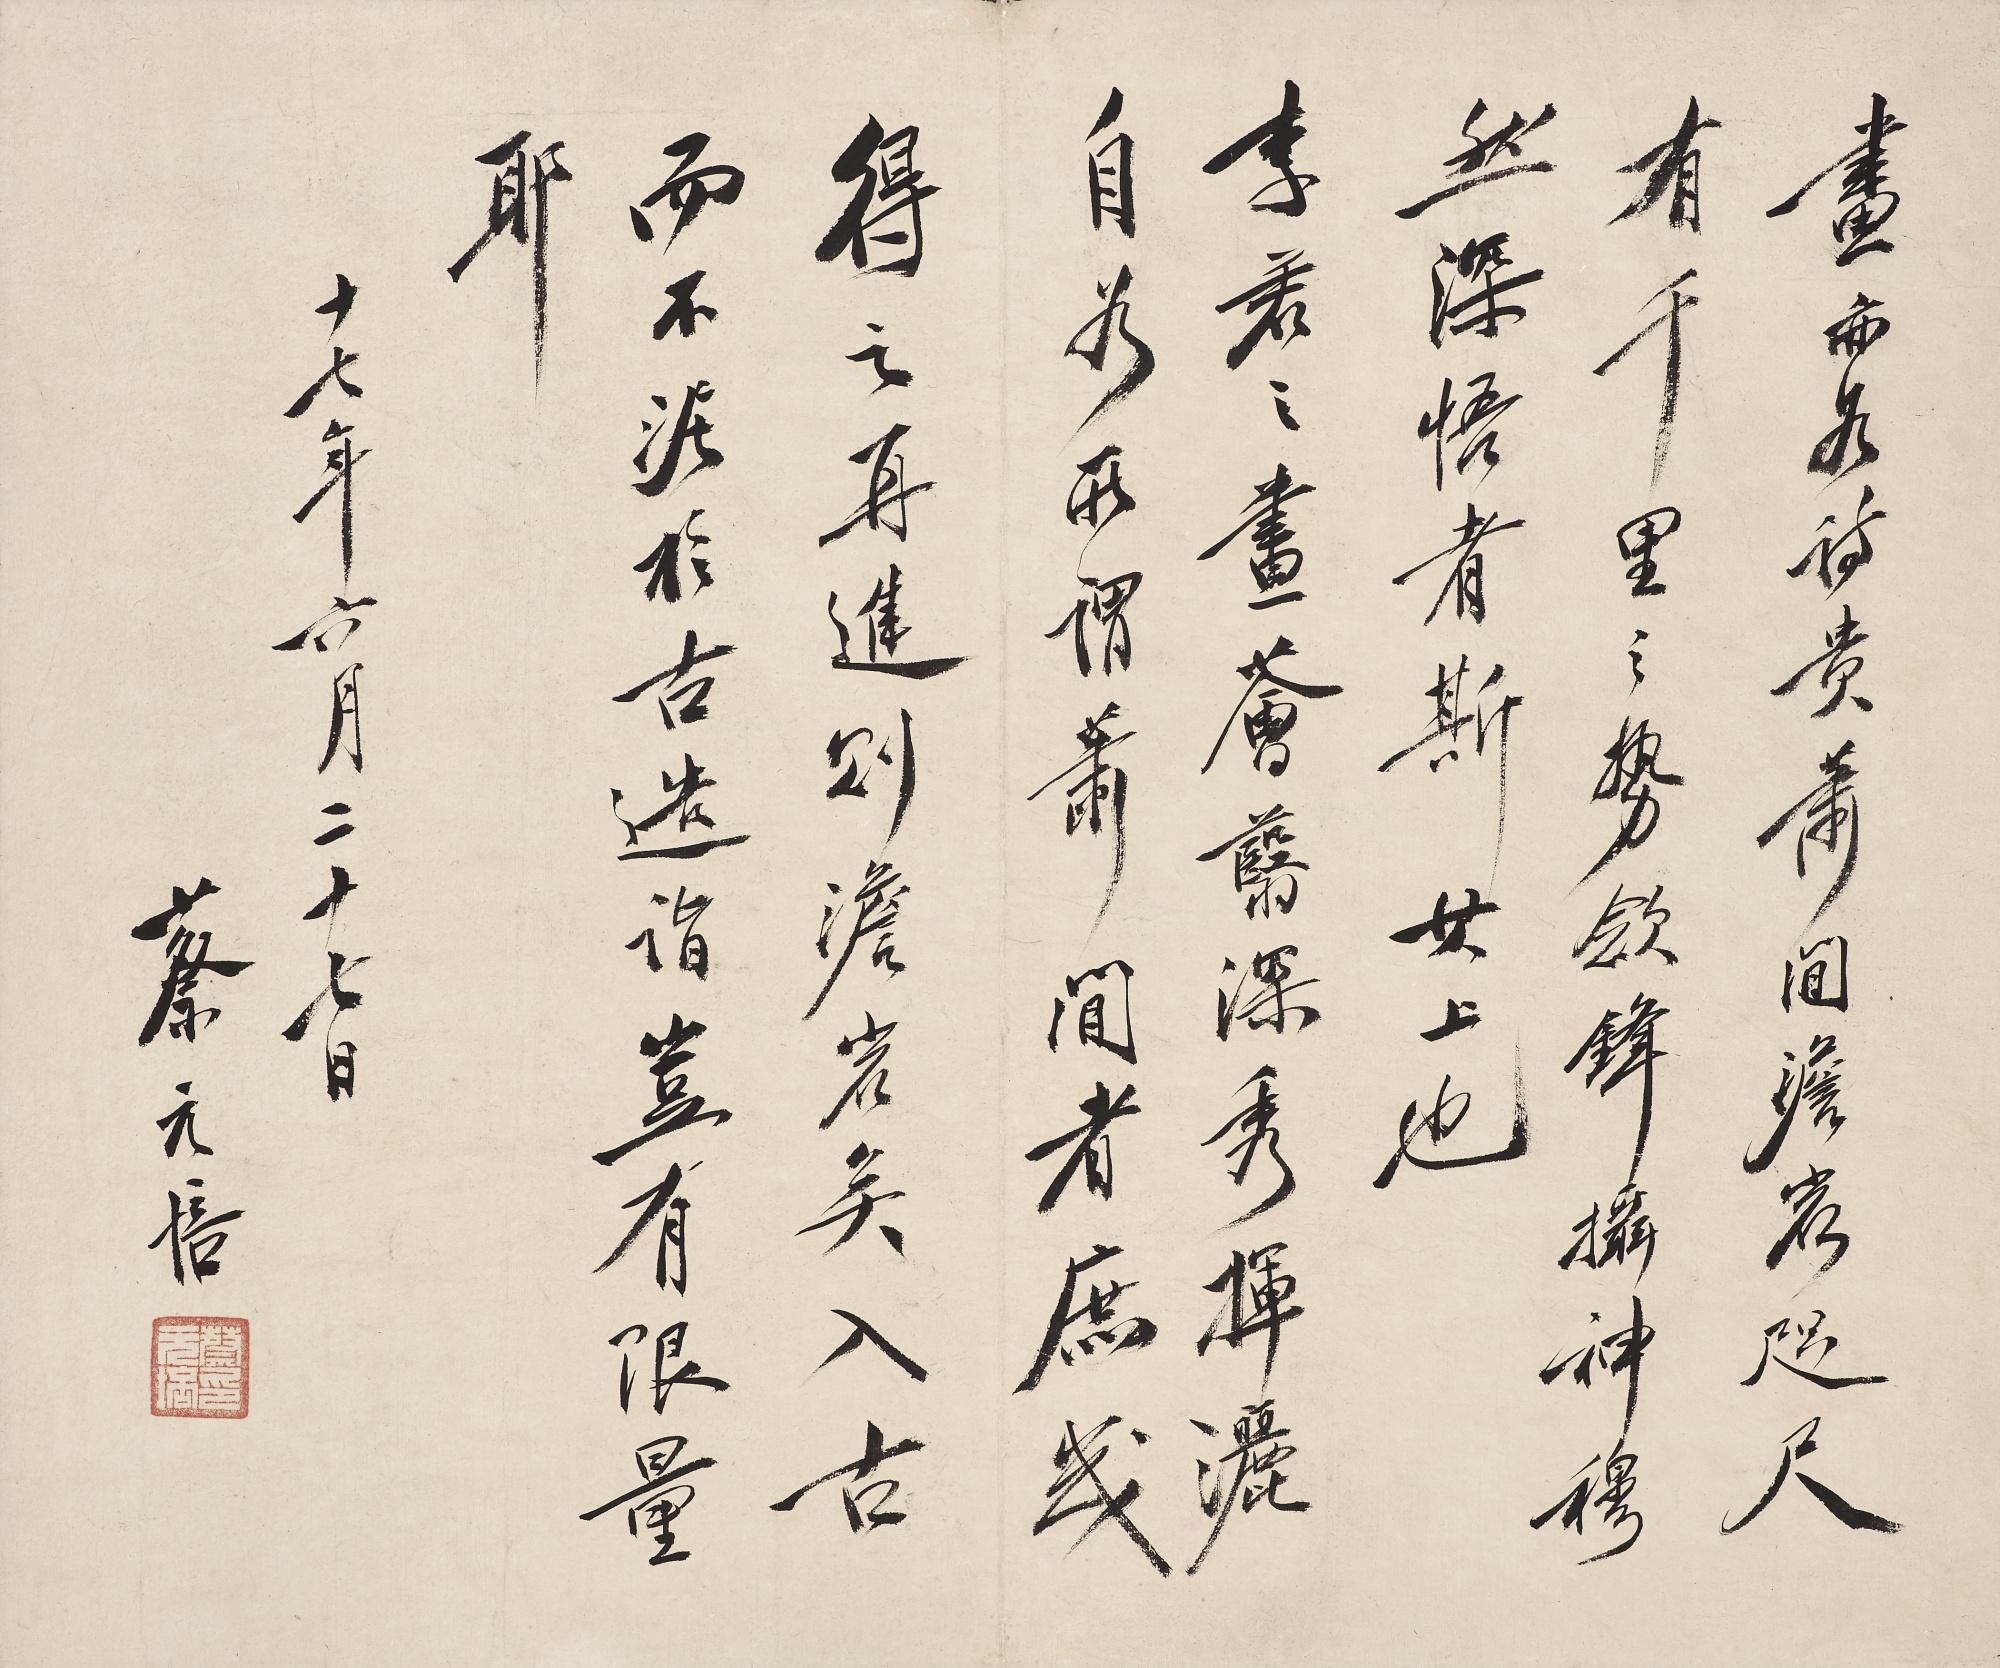 畫亦如詩貴蕭間澹宕咫尺
有千里之勢斂鋒攝神穆
然深悟者斯其上也
李君之畫薈蘙深秀揮灑
自如所謂蕭間者庶幾
得之再進則澹宕矣入古
而不泥於古造詣豈有限量
耶
十七年六月二十七日
蔡元培
蔡元培印